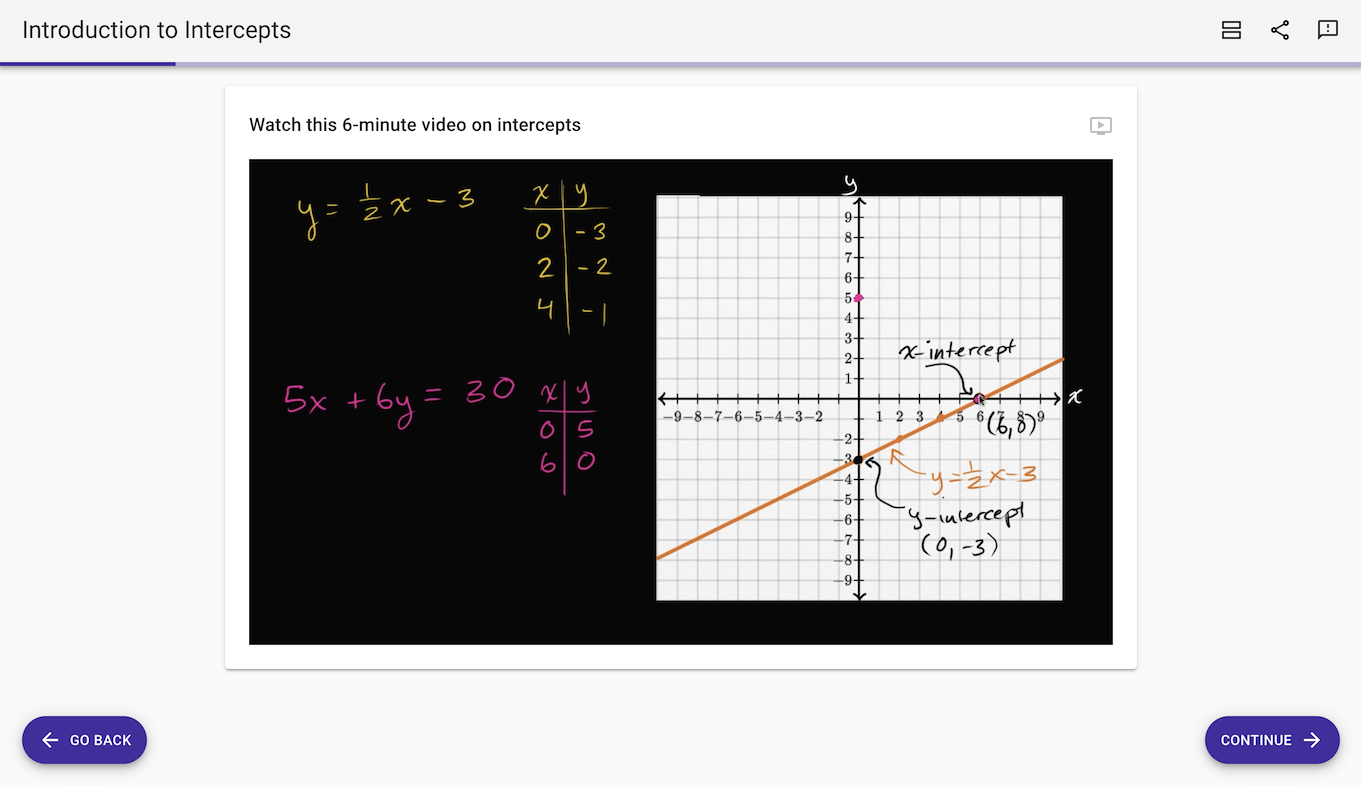 Introduction to Intercepts
Watch this 6-minute video on intercepts
y = 1/2 x - 3
x y
0 -3
2 -2
4 -1
5x + 6y = 30
x y
0 5
6 0
y
9
8
7
6
5
4
3
2
1
x-intercept
x
-9 -8 -7 -6 -5 -4 -3 -2 1 2 3 4 5 6 7 8 9
(6,0)
-2
-3
-4
-5
-6
-7
-8
-9
y = 1/2 x - 3
y-intercept
(0, -3)
GO BACK
CONTINUE